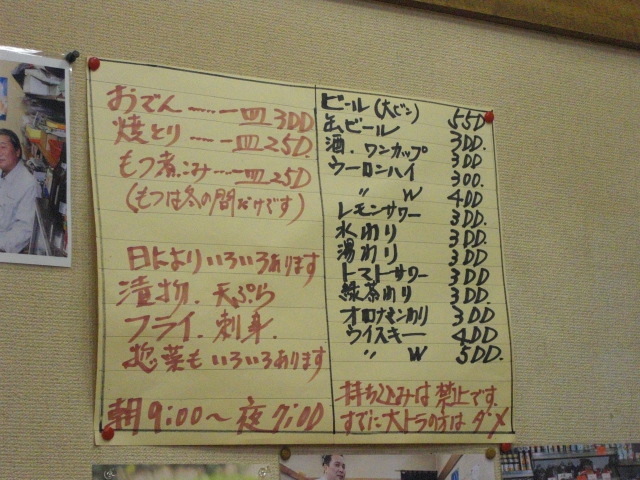 おでん……一皿300
焼とり……一皿250.
もつ煮こみ……一皿250
(もつは冬の間だけです)
日によりいろいろあります
漬物.天ぷら
フライ.刺身.
惣菜もいろいろあります
朝9:00〜夜7:00
ビール(大ビン) 550
缶ビール 300.
酒.ワンカップ 300
ウーロンハイ 300.
〃 W 400
レモンサワー 300.
水わり 300.
湯わり 300.
トマトサワー 300
緑茶わり 300.
オロナミンわり 300
ウイスキー 400
〃 W 500.
持ち込みは禁止です.
すでに大トラの方はダメ